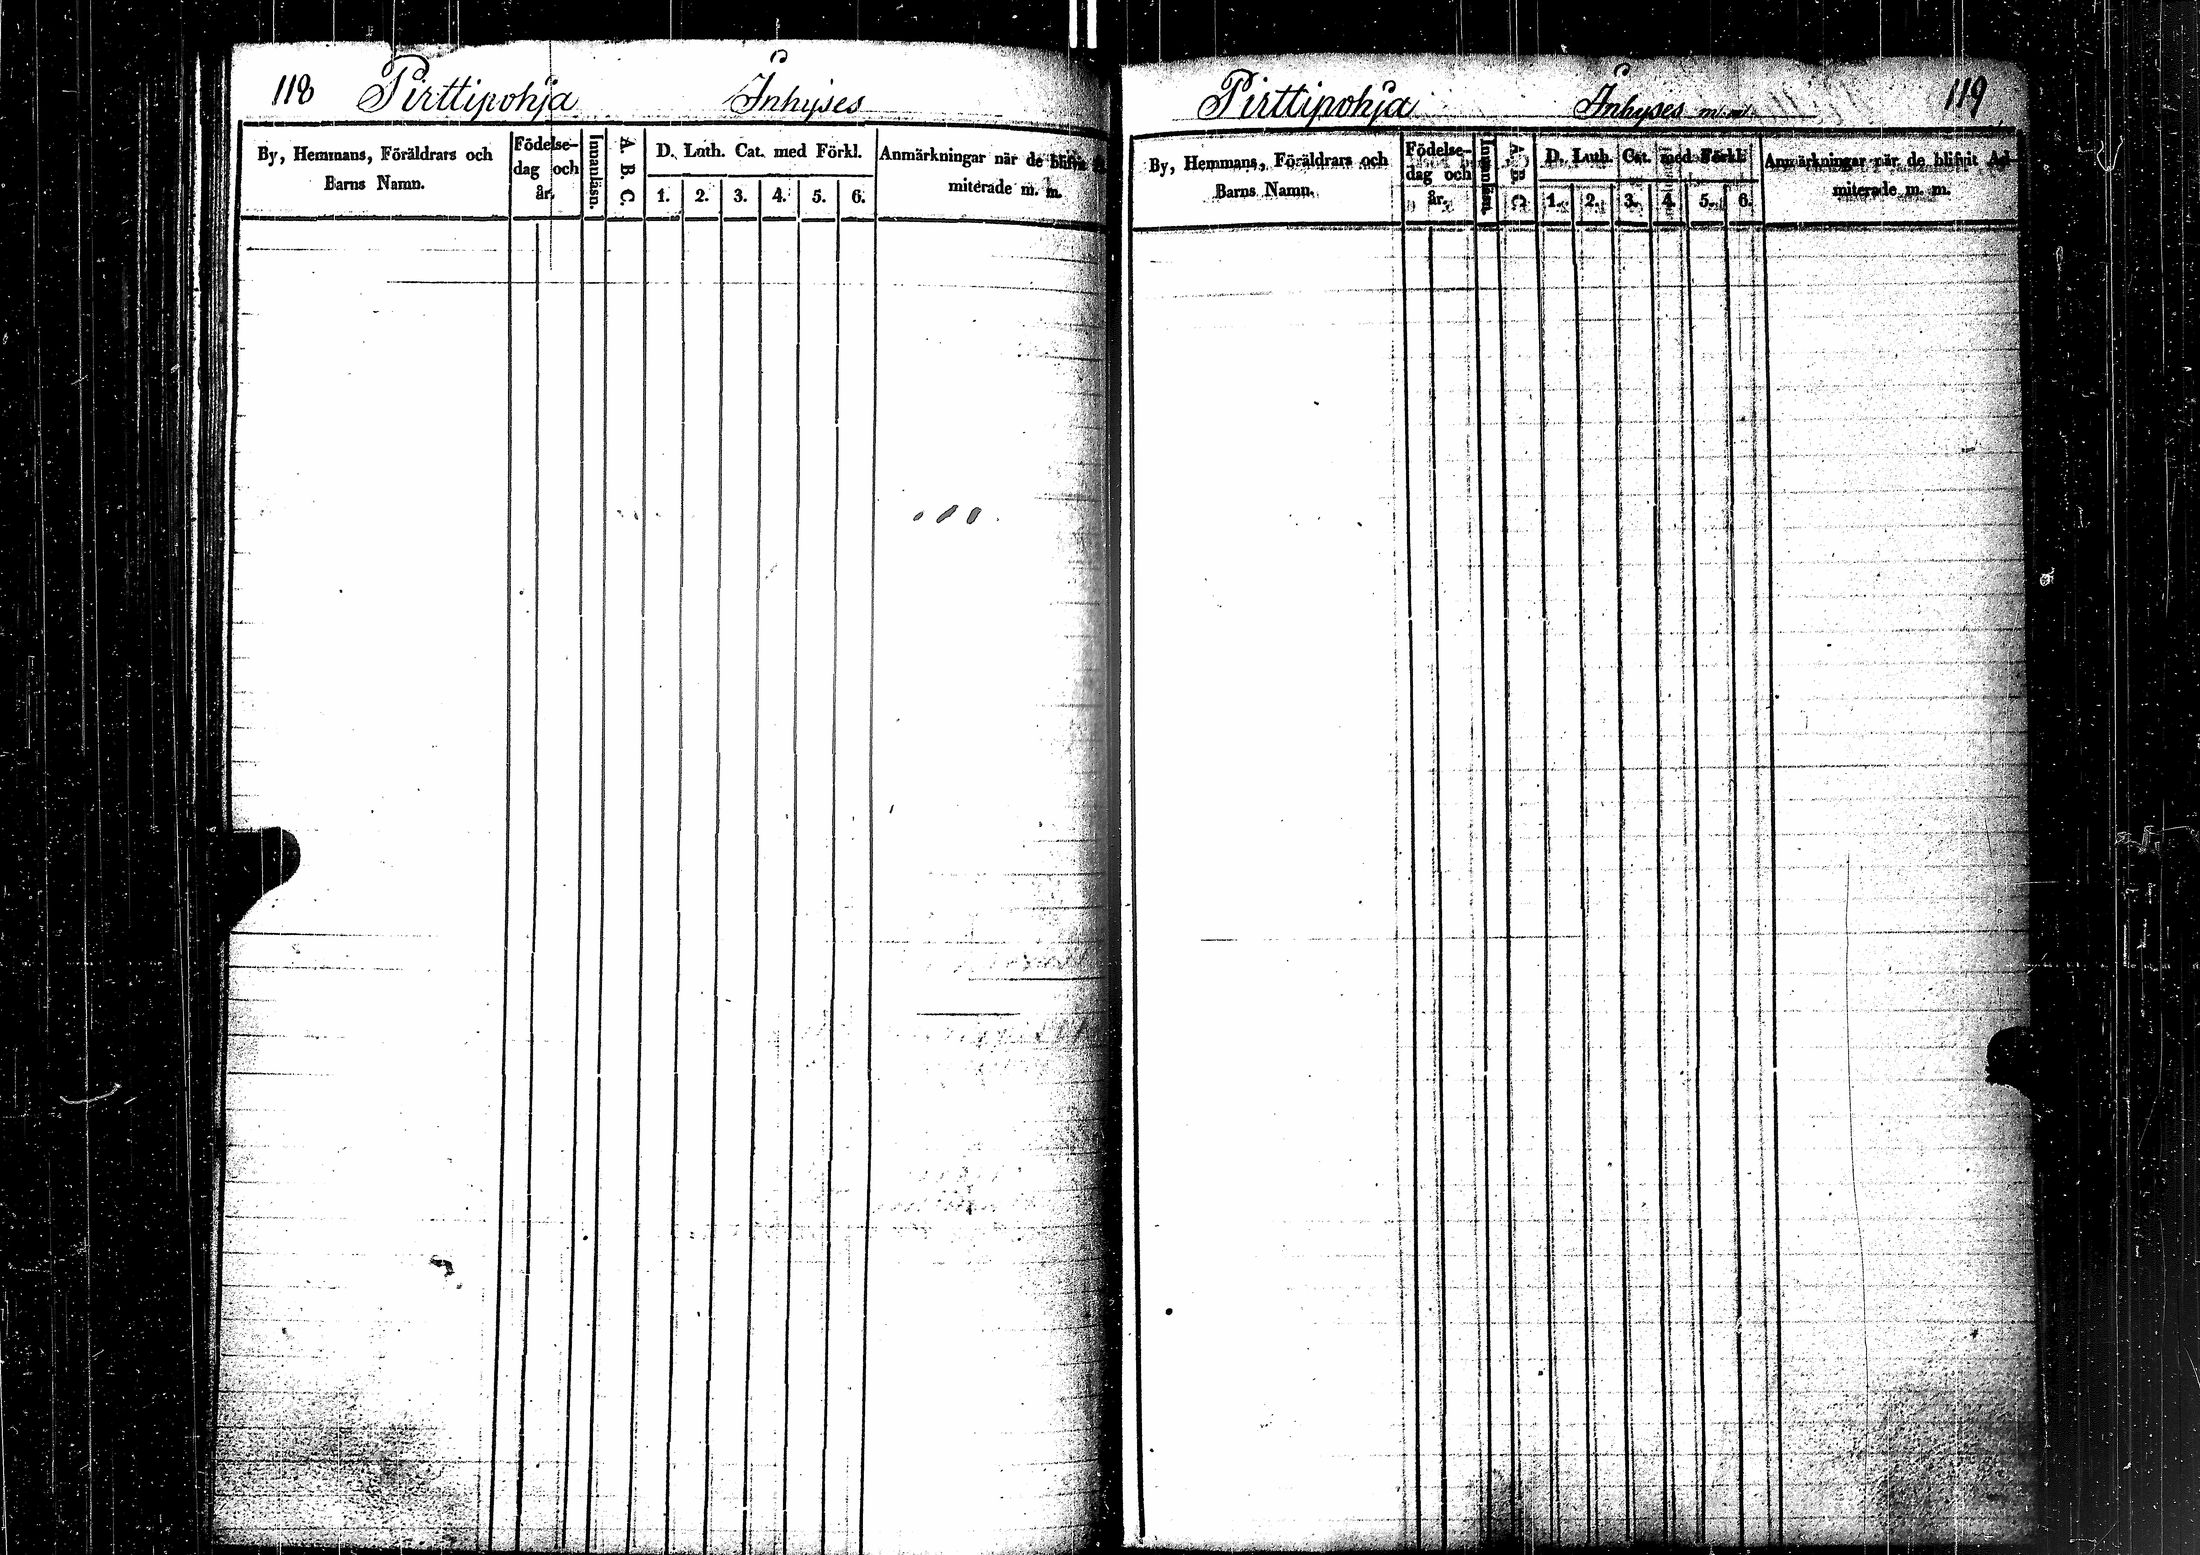 118 Pirttipohja Inhyses
By, Hemmans, Föräldrars och
Barns Namn.
Födelse-
dag och
år.
Innanläsn.
A. B. C.
D. Luth. Cat. med Förkl.
1. 2. 3. 4. 5. 6.
Anmärkningar när de blifvit
miterade m. m.
Pirttipohja Inhyses m. m. 119
By, Hemmans, Föräldrars och
Barns Namn.
Födelse-
dag och
år.
Innanläsn.
A. B. C.
D. Luth. Cat. med Förkl.
1. 2. 3. 4. 5. 6.
Anmärkningar när de blifvit Ad-
miterade m. m.